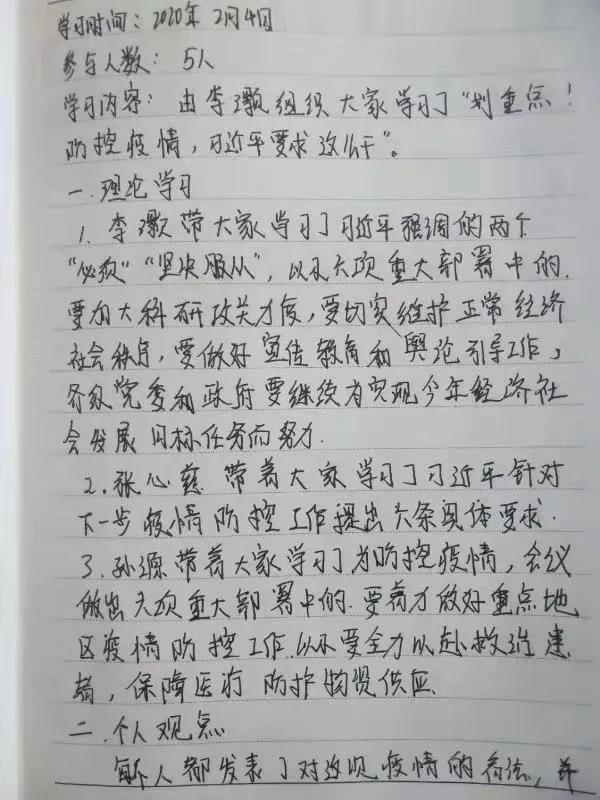 学习时间：2020年 2月4日
参与人数：5人
学习内容：由李灏组织大家学习了"划重点！
防控疫情，习近平要求这么干"。
一.理论学习
1. 李灏带大家学习了习近平强调的两个
"必须""坚决服从"，以及六项重大部署中的.
要加大科研攻关力度，要切实维护正常经济
社会秩序，要做好宣传教育和舆论引导工作，
各级党委和政府要继续为实现今年经济社
会发展目标任务而努力.
2.张心慈带着大家学习了习近平针对
下一步疫情防控工作提出六条具体要求.
3.孙源带着大家学习了为防控疫情，会议
做出六项重大部署中的.要着力做好重点地
区疫情防控工作.以及要全力以赴救治患
者，保障医疗防护物资供应.
二.个人观点
每个人都发表了对这次疫情的看法，并